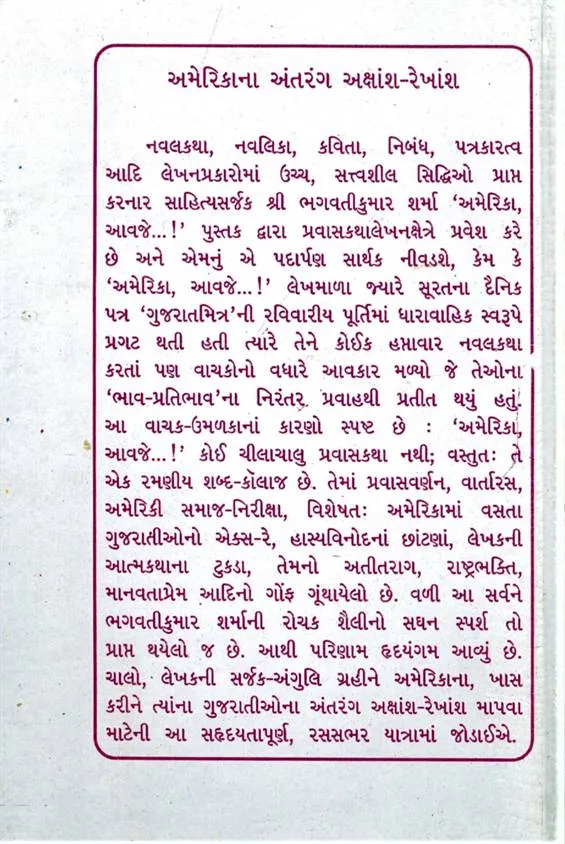 અમેરિકાના અંતરંગ અક્ષાંશ-રેખાંશ
નવલકથા, નવલિકા, કવિતા, નિબંધ, પત્રકારત્વ
આદિ લેખનપ્રકારોમાં ઉચ્ચ, સત્ત્વશીલ સિદ્ધિઓ પ્રાપ્ત
કરનાર સાહિત્યસર્જક શ્રી ભગવતીકુમાર શર્મા ‘અમેરિકા,
આવજે...!’ પુસ્તક દ્વારા પ્રવાસકથાલેખનક્ષેત્રે પ્રવેશ કરે
છે અને એમનું એ પદાર્પણ સાર્થક નીવડશે, કેમ કે
‘અમેરિકા, આવજે...!’ લેખમાળા જ્યારે સૂરતના દૈનિક
પત્ર ‘ગુજરાતમિત્ર’ની રવિવારીય પૂર્તિમાં ધારાવાહિક સ્વરૂપે
પ્રગટ થતી હતી ત્યારે તેને કોઈક હપ્તાવાર નવલકથા
કરતાં પણ વાચકોનો વધારે આવકાર મળ્યો જે તેઓના
‘ભાવ-પ્રતિભાવ’ના નિરંતર પ્રવાહથી પ્રતીત થયું હતું.
આ વાચક-ઉમળકાનાં કારણો સ્પષ્ટ છે : ‘અમેરિકા,
આવજે...!’ કોઈ ચીલાચાલુ પ્રવાસકથા નથી; વસ્તુતઃ તે
એક રમણીય શબ્દ-કૉલાજ છે. તેમાં પ્રવાસવર્ણન, વાર્તારસ,
અમેરિકી સમાજ-નિરીક્ષા, વિશેષતઃ અમેરિકામાં વસતા
ગુજરાતીઓનો એક્સ-રે, હાસ્યવિનોદનાં છાંટણાં, લેખકની
આત્મકથાના ટુકડા, તેમનો અતીતરાગ, રાષ્ટ્રભક્તિ,
માનવતાપ્રેમ આદિનો ગોંફ ગૂંથાયેલો છે. વળી આ સર્વને
ભગવતીકુમાર શર્માની રોચક શૈલીનો સઘન સ્પર્શ તો
પ્રાપ્ત થયેલો જ છે. આથી પરિણામ હૃદયંગમ આવ્યું છે.
ચાલો, લેખકની સર્જક-અંગુલિ ગ્રહીને અમેરિકાના, ખાસ
કરીને ત્યાંના ગુજરાતીઓના અંતરંગ અક્ષાંશ-રેખાંશ માપવા
માટેની આ સહૃદયતાપૂર્ણ, રસસભર યાત્રામાં જોડાઈએ.